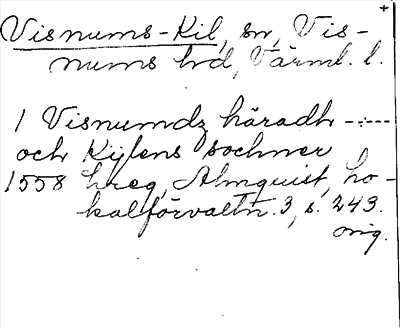 +
Visnums-Kil, sn, Vis-
nums hd, Värml. l.
I Visnumdz häradh -----
och Kijlens sochner
1558 hreg, Almquist, Lo-
kalförvaltn. 3, s. 243.
orig.